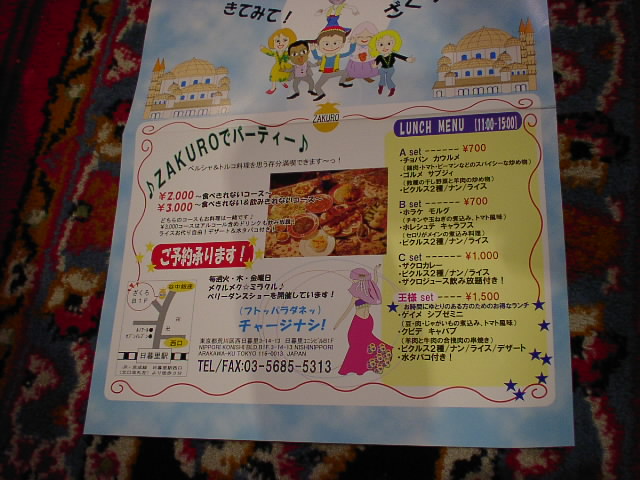 きてみて!
ZAKURO
♪ZAKUROでパーティー♪
ペルシャ&トルコ料理を思う存分満喫できます〜っ!
¥2.000〜食べきれないコース〜
¥3.000〜食べきれない&飲みきれないコース〜
どちらのコースもお料理は一緒です♪
¥3,000コースはアルコール含めドリンクも飲み放題!
ライスおかわり自由!デザート&水タバコ付き!
ご予約承ります!
毎週火・木・金曜日
メクルメク☆ミラクル♪
ベリーダンスショーを開催しています!
(フトッパラダネッ)
チャージナシ!
ざくろ
B1F
谷中銀座
西口
日暮里駅
東京都荒川区西日暮里3-14-13 日暮里コニシビルB1F
NIPPORI KONISHI BLD.B1F 3-14-13 NISHINIPPORI
ARAKAWA-KU TOKYO 116-0013, JAPAN
TEL/FAX:03-5685-5313
LUNCH MENU [11:00-15:00]
A set ------- ¥700
・チョバン カウルメ
(鶏肉・トマト・ピーマンなどのスパイシーな炒め物)
・ゴルメ サブジィ
(数種の干し野菜と羊肉の炒め物)
・ピクルス2種/ナン/ライス
B set ------- ¥700
・ホラケ モルグ
(チキンや玉ねぎの煮込み、トマト風味)
・ホレシュテ キャラフス
(セロリがメインの煮込み料理)
・ピクルス2種/ナン/ライス
C set ------- ¥1,000
・ザクロカレー
・ピクルス2種/ナン/ライス
・ザクロジュース飲み放題付き!
王様 set ---- ¥1,500
お時間にゆとりのある方のためのお得なランチ
・ゲイメ シブゼミニ
(豆・肉・じゃがいもの煮込み、トマト風味)
・クビデ キャバブ
(羊肉と牛肉の合挽肉の串焼き)
・ピクルス2種/ナン/ライス/デザート
・水タバコ付き!